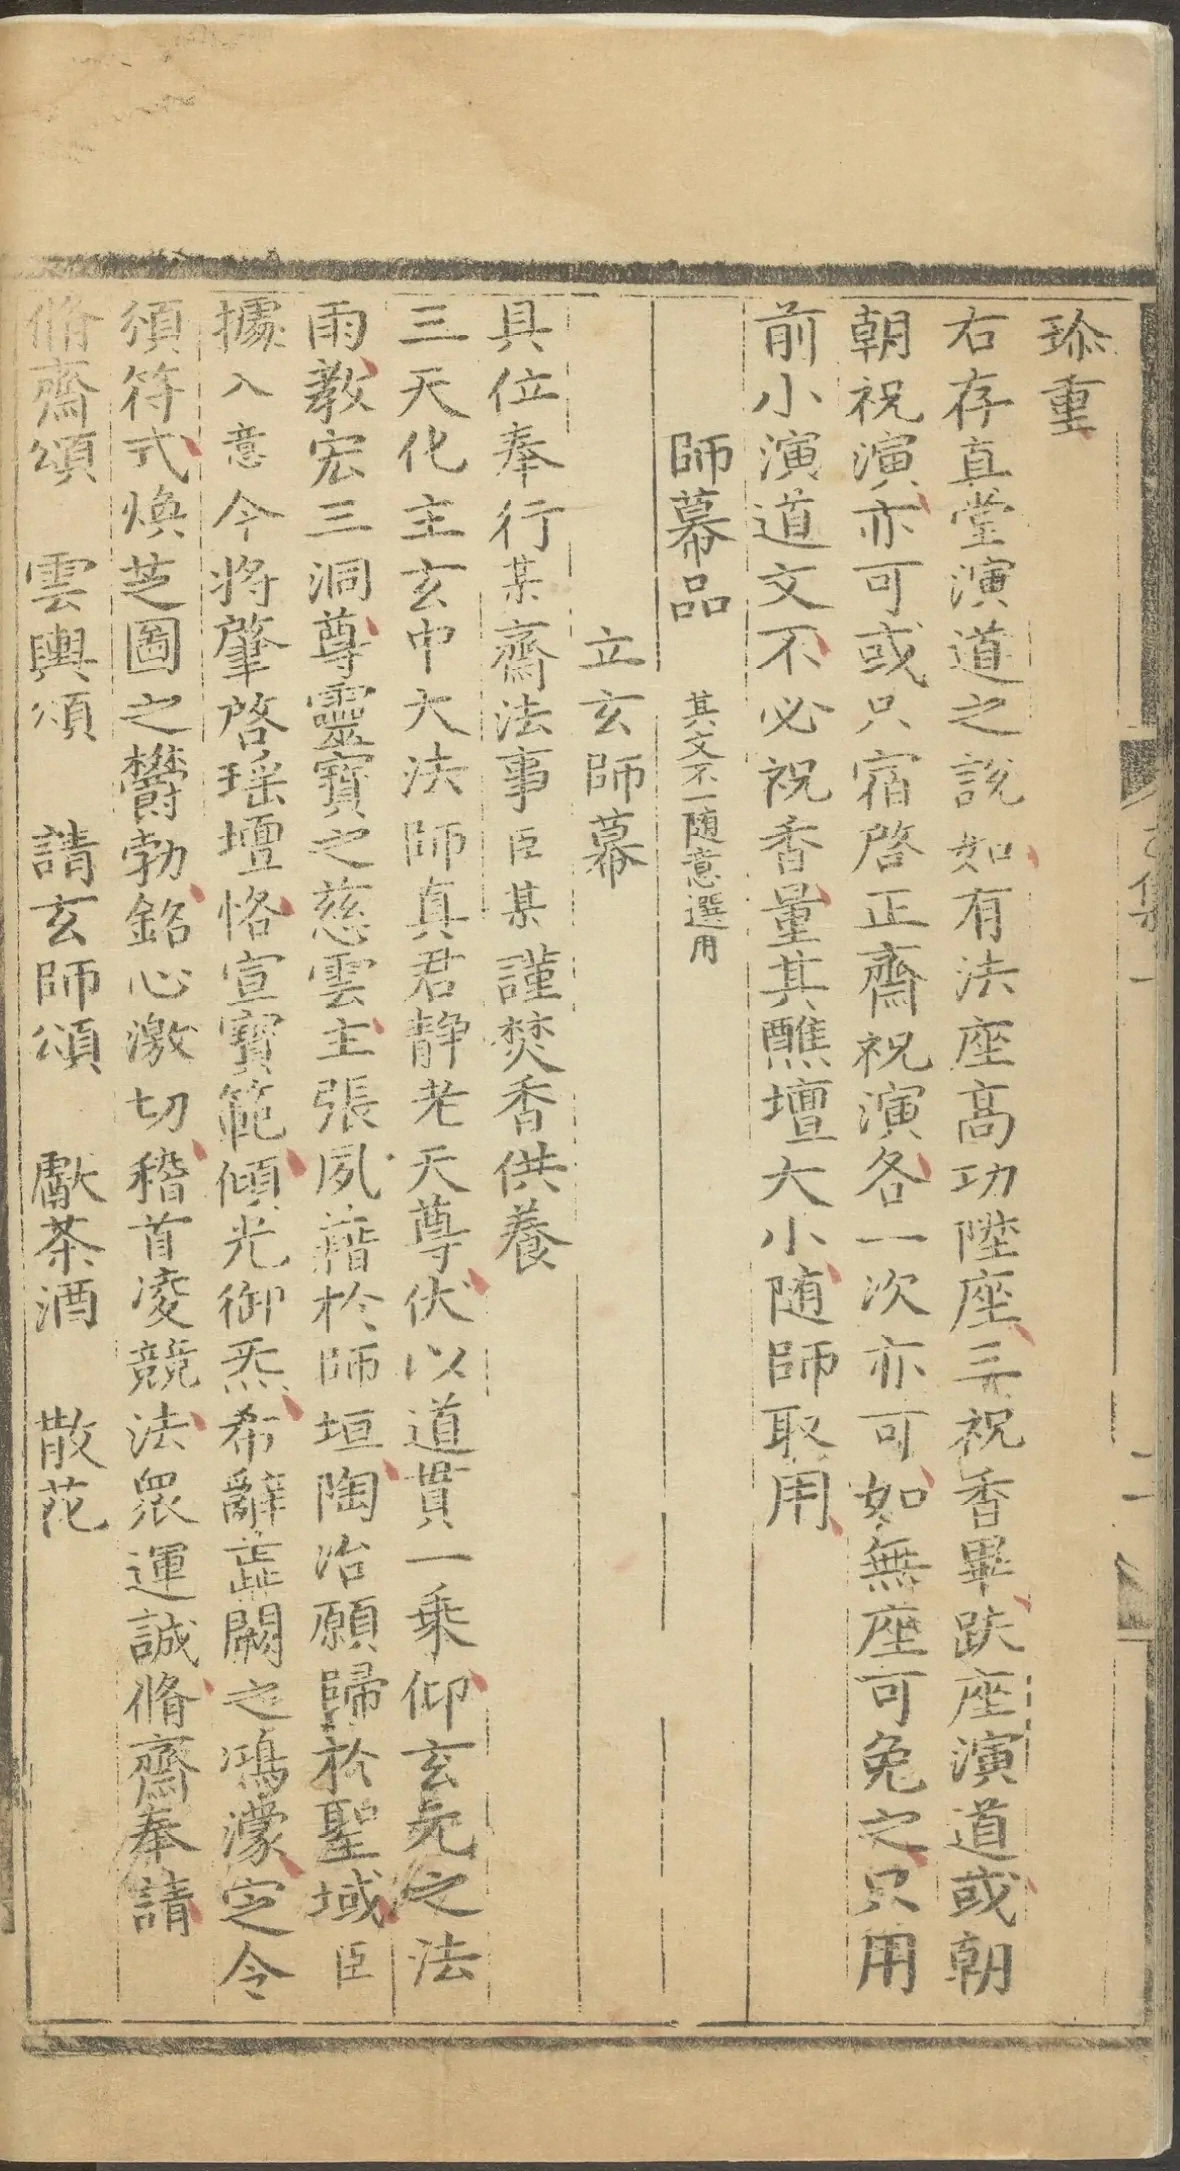 珎重
右存真堂演道之說如有法座高功陞座三祝香畢趺座演道或朝
朝祝演亦可或只宿啓正齋祝演各一次亦可如無座可免之只用
前小演道文不必祝香量其醮壇大小随師取用
師幕品 其文不一随意選用
立玄師幕
具位奉行某齋法事臣某謹焚香供養
三天化主玄中大法師真君静老天尊伏以道貫一乗仰玄元之法
雨教宏三洞尊靈寳之慈雲主張夙藉於師垣陶冶願歸於聖域臣
據入意今将肇啓瑶壇恪宣寳範傾光御炁希辭蘂闕之鴻濛定令
須符式煥芝圖之欝勃銘心激切稽首凌競法衆運誠脩齋奉請
脩齋頌 雲輿頌 請玄師頌 獻茶酒 散花
集一
二